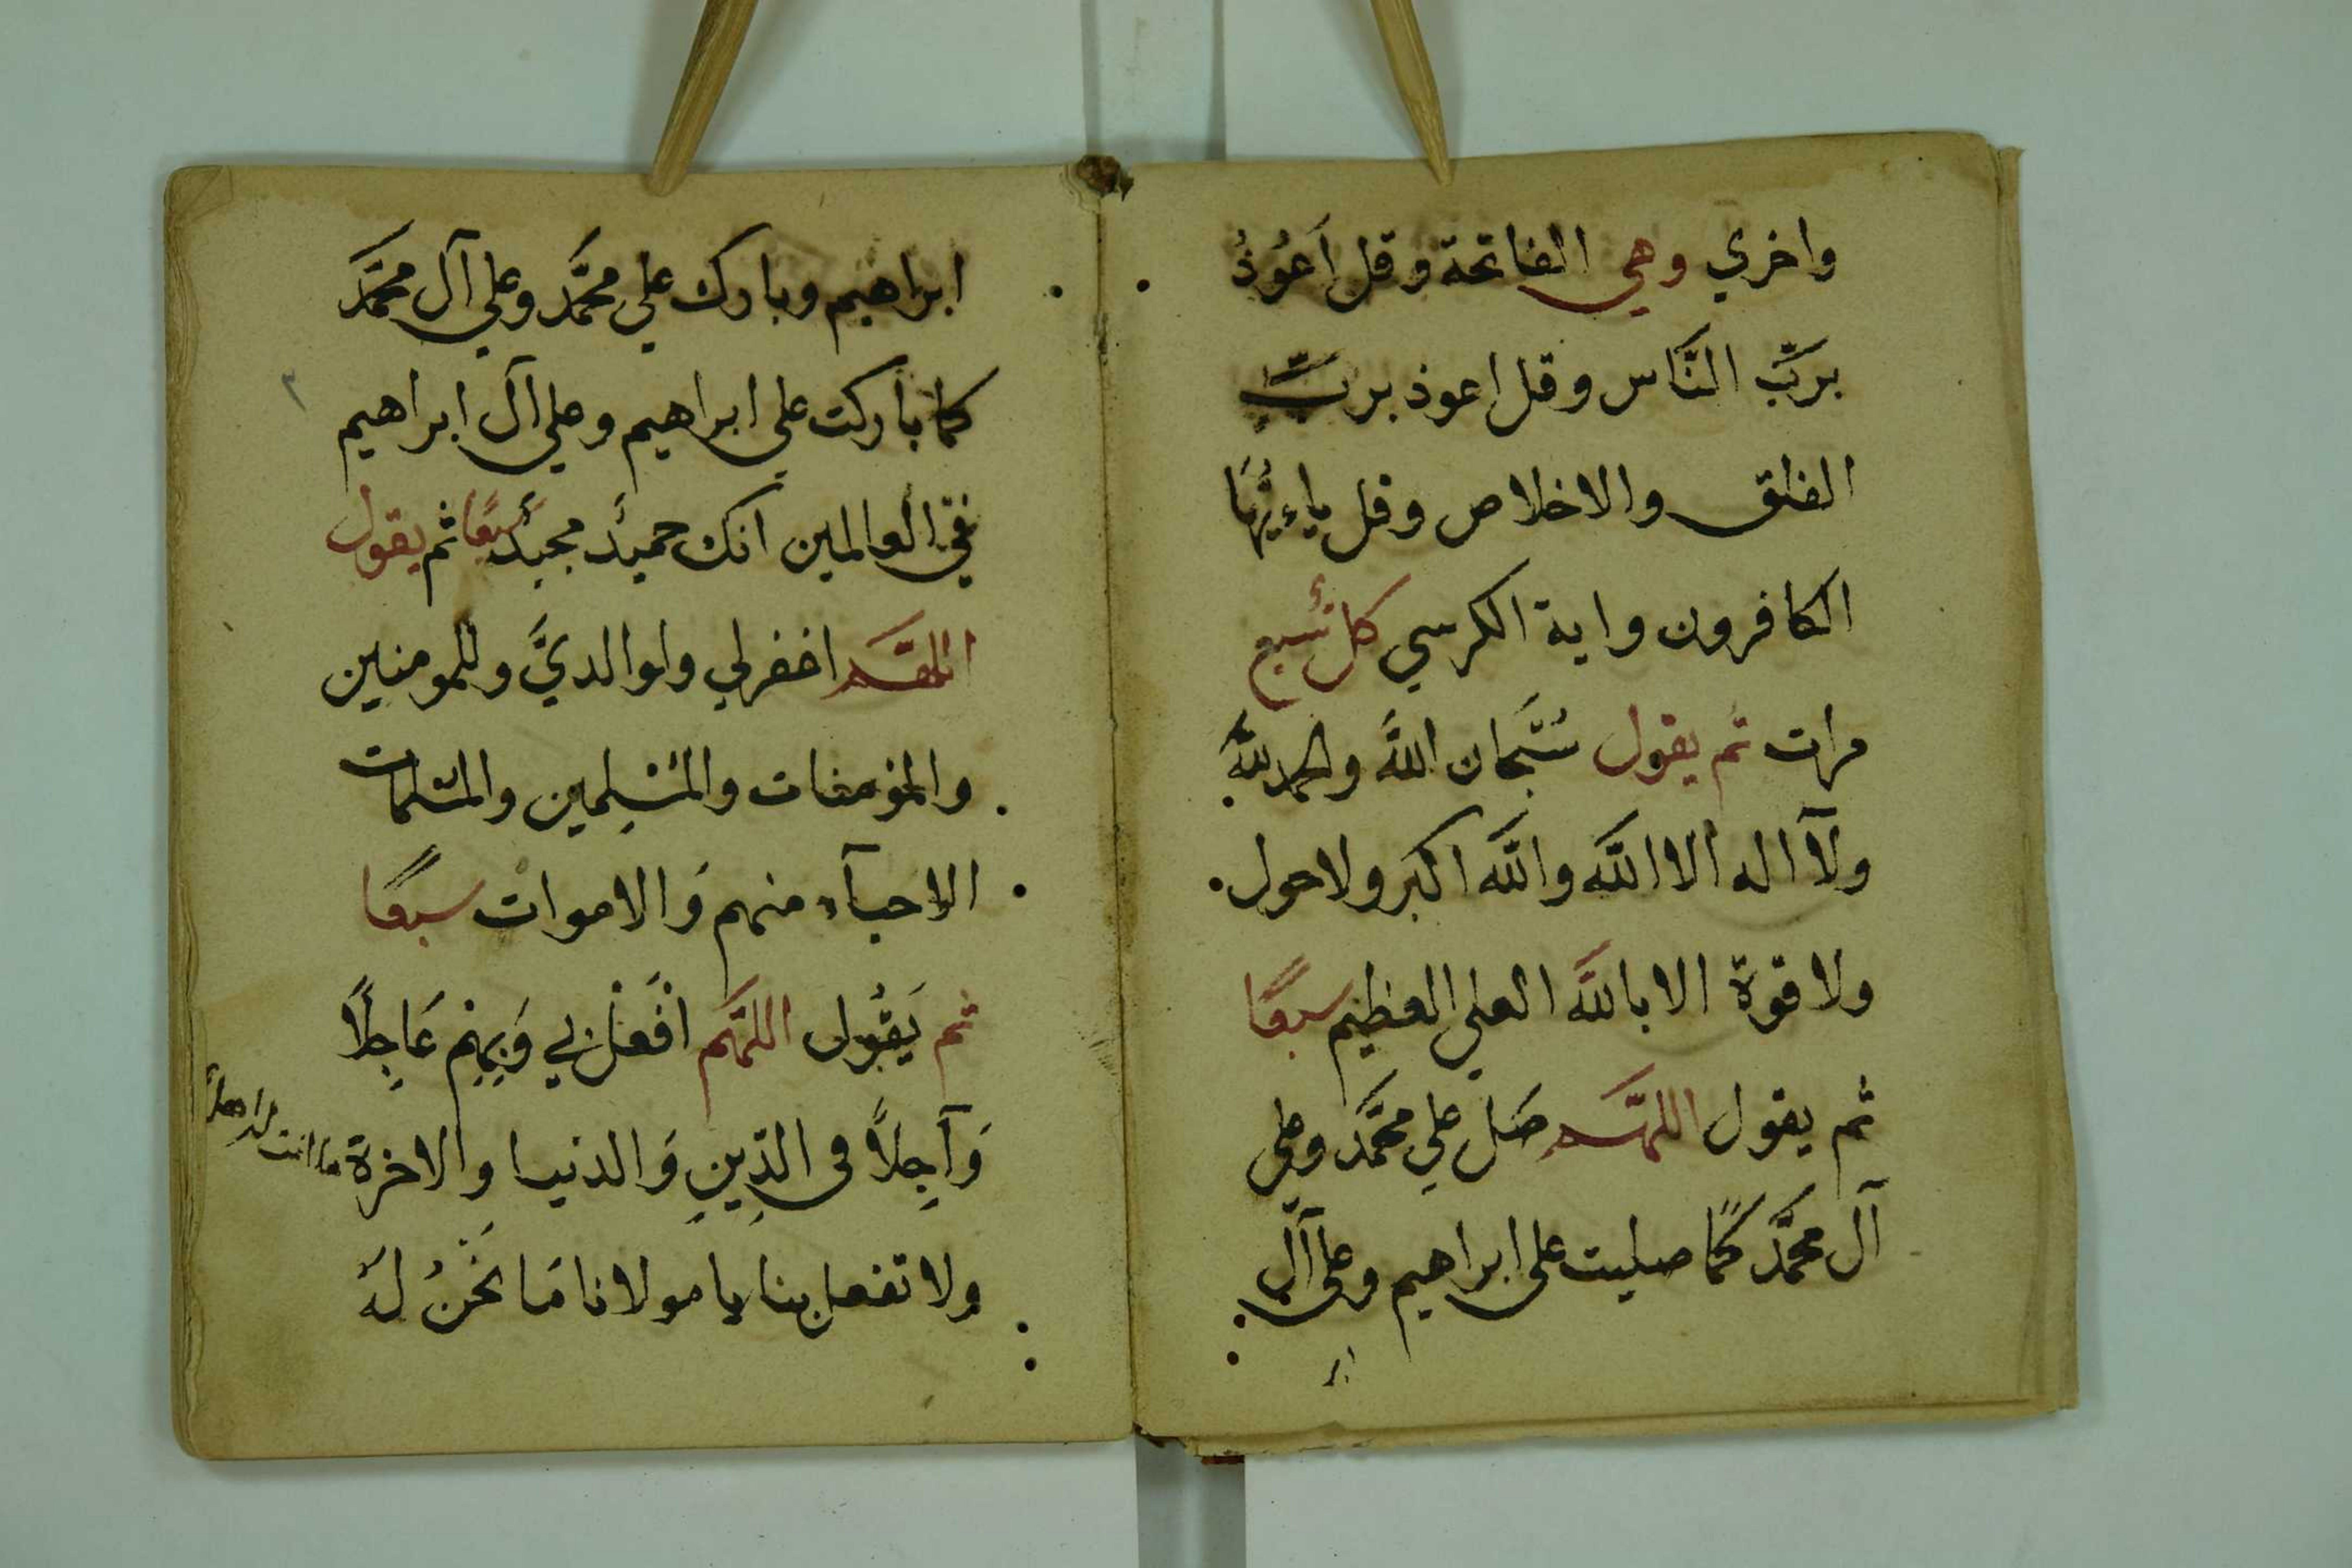 واخري وهي الفاتحة وقل اَعُوذُ
بربّ النّاس وقل اعوذ بربّ
الفلق والاخلاص وقل ياءيّهَا
الكافرون واية الكرسي كلٌ سبع
مرات ثم يقول سُبْحان اللَّه والحمد للَّه
ولآ اله الا اللَّه واللَّه اكبر ولا حول
ولا قوة الا باللَّه العلي العظيم سبعًا
ثم يقول اللهُمَّ صَل علي محمَّد وعلي
آل محمَّد كمَا صليت على ابراهيم وعلى آل
ابر
ابراهيم وبارك علي محمَّد وعلي آل محمَّد
كما باركت علي ابراهيم وعلي آل ابراهيم
في العالمين انك حميدٌ مجيدٌ سبعًا ثم يقول
اللهَّم اغفرلي ولوالديَّ وللمومنين
والمؤمنات والمسْلِمين والمسْلمات
الاحيآء منهم وَالاموات سبعًا
ثم يَقُول اللهَّم افْعَلْ بي وَبِهِم عَاجِلاً
وَآجِلاً فى الدِّينِ وَالدنيا والاخرة ما انت له اهل
ولا تفعل بنا يا مولانا مَا نَحْنُ لَهُ